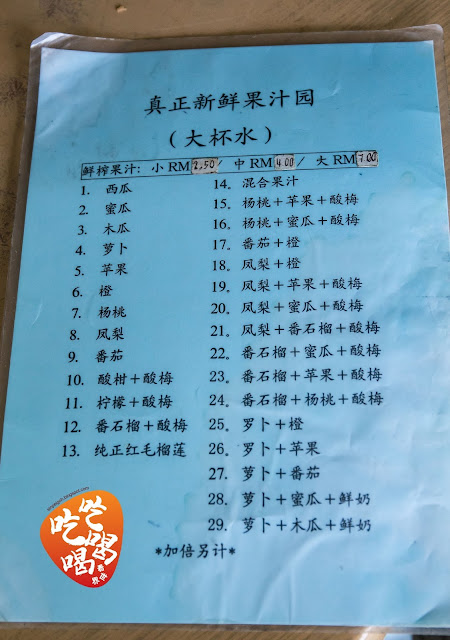 真正新鲜果汁园
（大杯水）
鲜榨果汁: 小 RM 2.50 / 中 RM 4.00 / 大 RM 7.00
1. 西瓜
2. 蜜瓜
3. 木瓜
4. 萝卜
5. 苹果
6. 橙
7. 杨桃
8. 凤梨
9. 番茄
10. 酸柑+酸梅
11. 柠檬+酸梅
12. 番石榴+酸梅
13. 纯正红毛榴莲
14. 混合果汁
15. 杨桃+苹果+酸梅
16. 杨桃+蜜瓜+酸梅
17. 番茄+橙
18. 凤梨+橙
19. 凤梨+苹果+酸梅
20. 凤梨+蜜瓜+酸梅
21. 凤梨+番石榴+酸梅
22. 番石榴+蜜瓜+酸梅
23. 番石榴+苹果+酸梅
24. 番石榴+杨桃+酸梅
25. 罗卜+橙
26. 罗卜+苹果
27. 萝卜+番茄
28. 萝卜+蜜瓜+鲜奶
29. 萝卜+木瓜+鲜奶
*加倍另计*
吃吃喝喝